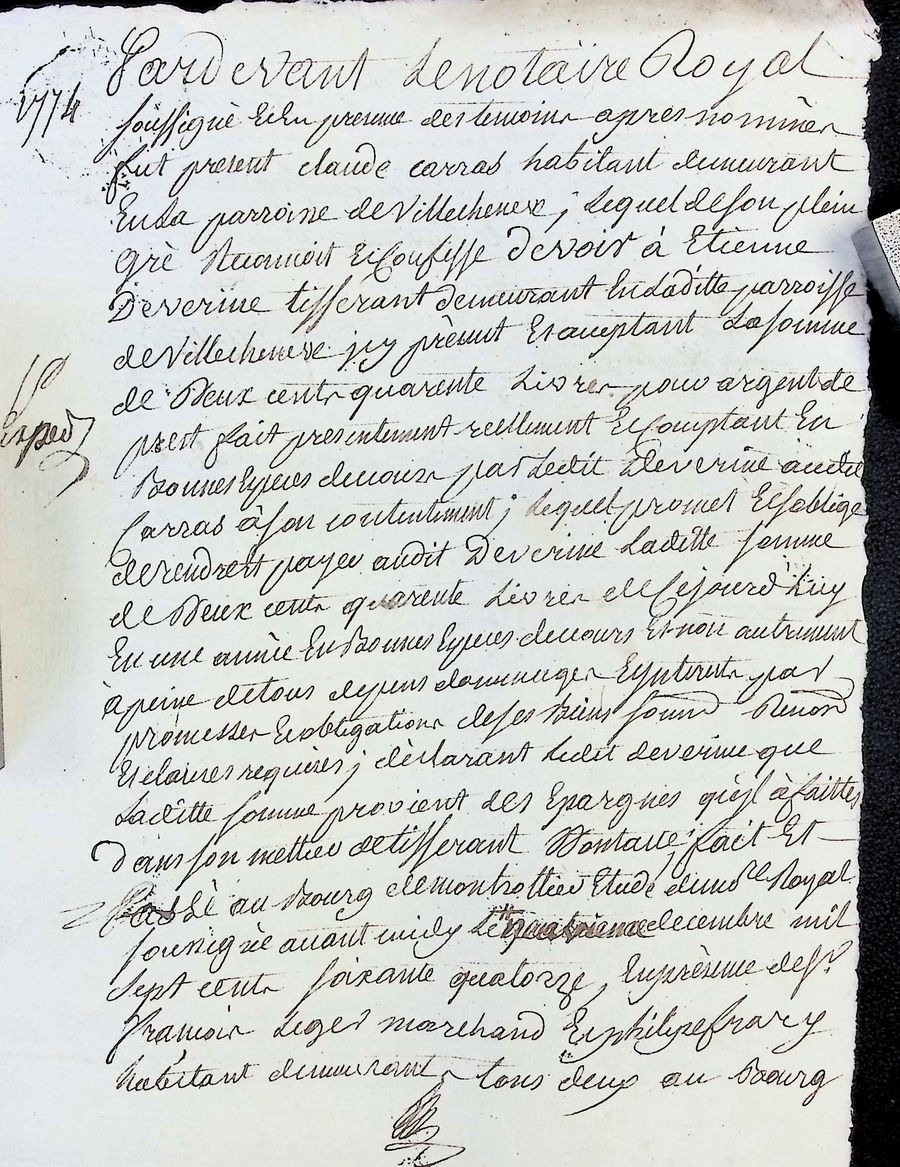 Pardevant Le notaire Royal
1774
soussigné Et En presence des temoins apres nommés
fut present claude carras habitant demeurant
En La parroisse de Villecheneve ; Lequel de son plein
gré Reconnoit Et Confesse devoir à Etienne
Deverine tisserant demeurant En Laditte parroisse
de Villecheneve icy présent Et acceptant La somme
de Deux cents quarente Livres pour argent de
Exped
prest fait presentement reellement Et Comptant En
Bonnes Especes de cours par Ledit Deverine audit
Carras à son contentement ; Lequel promet Et s'oblige
de rendre et payer audit Deverine Laditte somme
de Deux cents quarente Livres de Cejourd'huy
En une année En Bonnes Especes de cours Et non autrement
à peine de tous depens dommages Eynterets par
promesses Et obligations de ses Biens soumd Renond
Et clauses requises ; déclarant Ledit deverine que
Laditte somme provient des Epargnes qu'yl à faittes
dans son mettier de tisserant Dontacte ; fait Et
Passé au Bourg de montrottier Etude du nore Royal
soussigné avant midy Le decembre mil
sept cents soixante quatorze, En presence de sr
francois Leger marchand Et philipe frary
habitant demeurants tous deux au Bourg